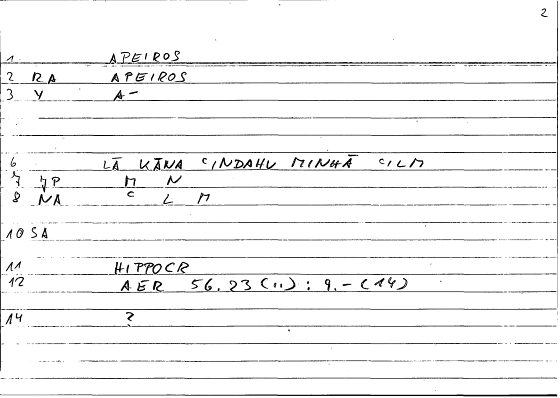 2
1 APEIROS
2 RA APEIROS
3 Y A-
6 LĀ KĀNA ʿINDAHU MINHĀ ʿILM
7 M N
8 NA ʿ L M
10 SA
11 HIPPOCR
12 AER 56.23 (11) : 9.- (14)
14 ?